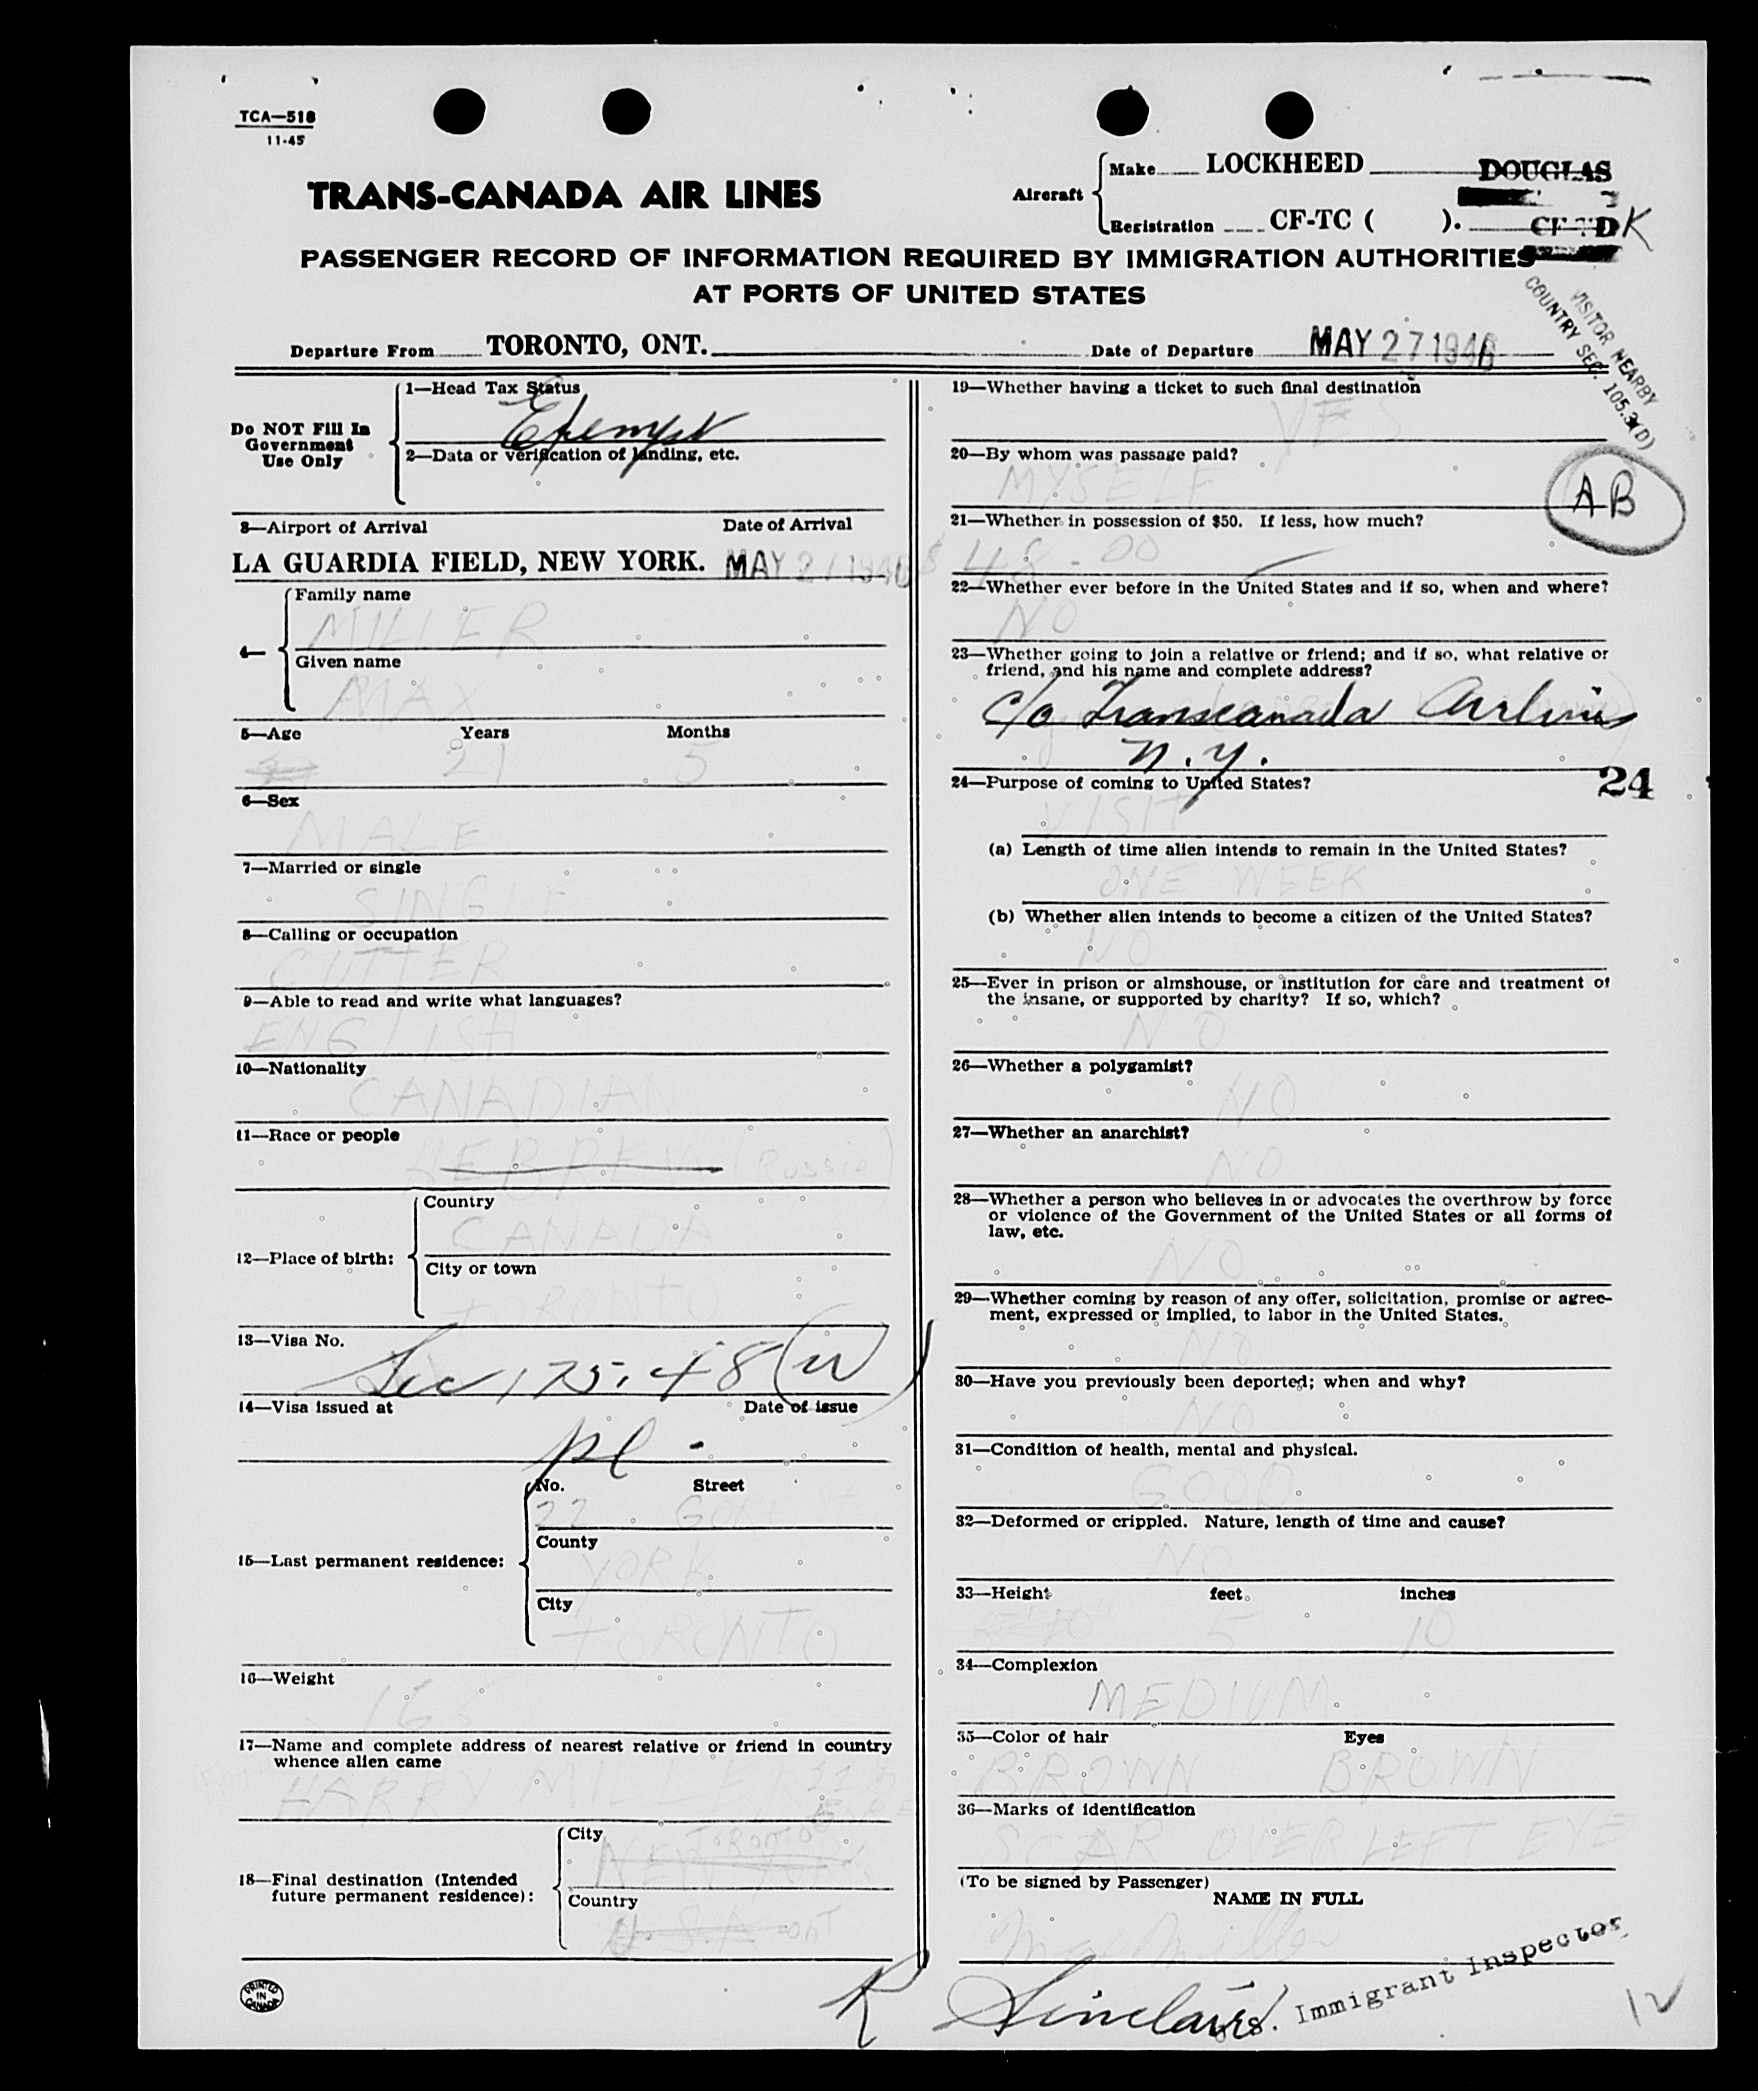 TCA—518
11-45
TRANS-CANADA AIR LINES
Aircraft
Make LOCKHEED DOUGLAS
Registration CF-TC ( ). CF-T D K
PASSENGER RECORD OF INFORMATION REQUIRED BY IMMIGRATION AUTHORITIES
AT PORTS OF UNITED STATES
VISITOR NEARBY
COUNTRY SEC. 105.3(D)
Departure From TORONTO, ONT.
Date of Departure MAY 27 1946
Do NOT Fill In
Government
Use Only
1—Head Tax Status
Exempt
2—Data or verification of landing, etc.
3—Airport of Arrival Date of Arrival
LA GUARDIA FIELD, NEW YORK. MAY 27 1946
4—
Family name
MILLER
Given name
MAX
5—Age Years Months
21 5
6—Sex
MALE
7—Married or single
SINGLE
8—Calling or occupation
CUTTER
9—Able to read and write what languages?
ENGLISH
10—Nationality
CANADIAN
11—Race or people
HEBREW (Russia)
12—Place of birth:
Country
CANADA
City or town
TORONTO
13—Visa No.
Sec 175.48 (W)
14—Visa issued at Date of issue
Pl -
15—Last permanent residence:
No. Street
22 GORE
County
YORK
City
TORONTO
16—Weight
165
17—Name and complete address of nearest relative or friend in country
whence alien came
HARRY MILLER
18—Final destination (Intended
future permanent residence):
City
TORONTO
NEW YORK
Country
U.S.A. ONT
PRINTED
IN
CANADA
19—Whether having a ticket to such final destination
YES
20—By whom was passage paid?
MYSELF
AB
21—Whether in possession of $50. If less, how much?
$48-00
22—Whether ever before in the United States and if so, when and where?
NO
23—Whether going to join a relative or friend; and if so, what relative or
friend, and his name and complete address?
c/o Transcanada Airlines
N.Y.
24
24—Purpose of coming to United States?
VISIT
(a) Length of time alien intends to remain in the United States?
ONE WEEK
(b) Whether alien intends to become a citizen of the United States?
NO
25—Ever in prison or almshouse, or institution for care and treatment of
the insane, or supported by charity? If so, which?
NO
26—Whether a polygamist?
NO
27—Whether an anarchist?
NO
28—Whether a person who believes in or advocates the overthrow by force
or violence of the Government of the United States or all forms of
law, etc.
NO
29—Whether coming by reason of any offer, solicitation, promise or agree-
ment, expressed or implied, to labor in the United States.
NO
30—Have you previously been deported; when and why?
NO
31—Condition of health, mental and physical.
GOOD
32—Deformed or crippled. Nature, length of time and cause?
NO
33—Height feet inches
5 10
34—Complexion
MEDIUM
35—Color of hair Eyes
BROWN BROWN
36—Marks of identification
SCAR OVER LEFT EYE
(To be signed by Passenger)
NAME IN FULL
Max Miller
R Sinclair
U.S. Immigrant Inspector
12